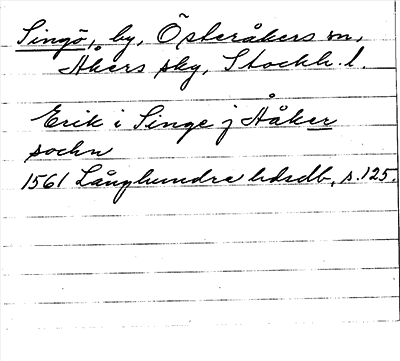 Singö, by, Österåkers sn,
Åkers sky, Stockh. l.
Erik i Singe j Håker
sochn
1561 Långhundra hdsdb, s. 125.